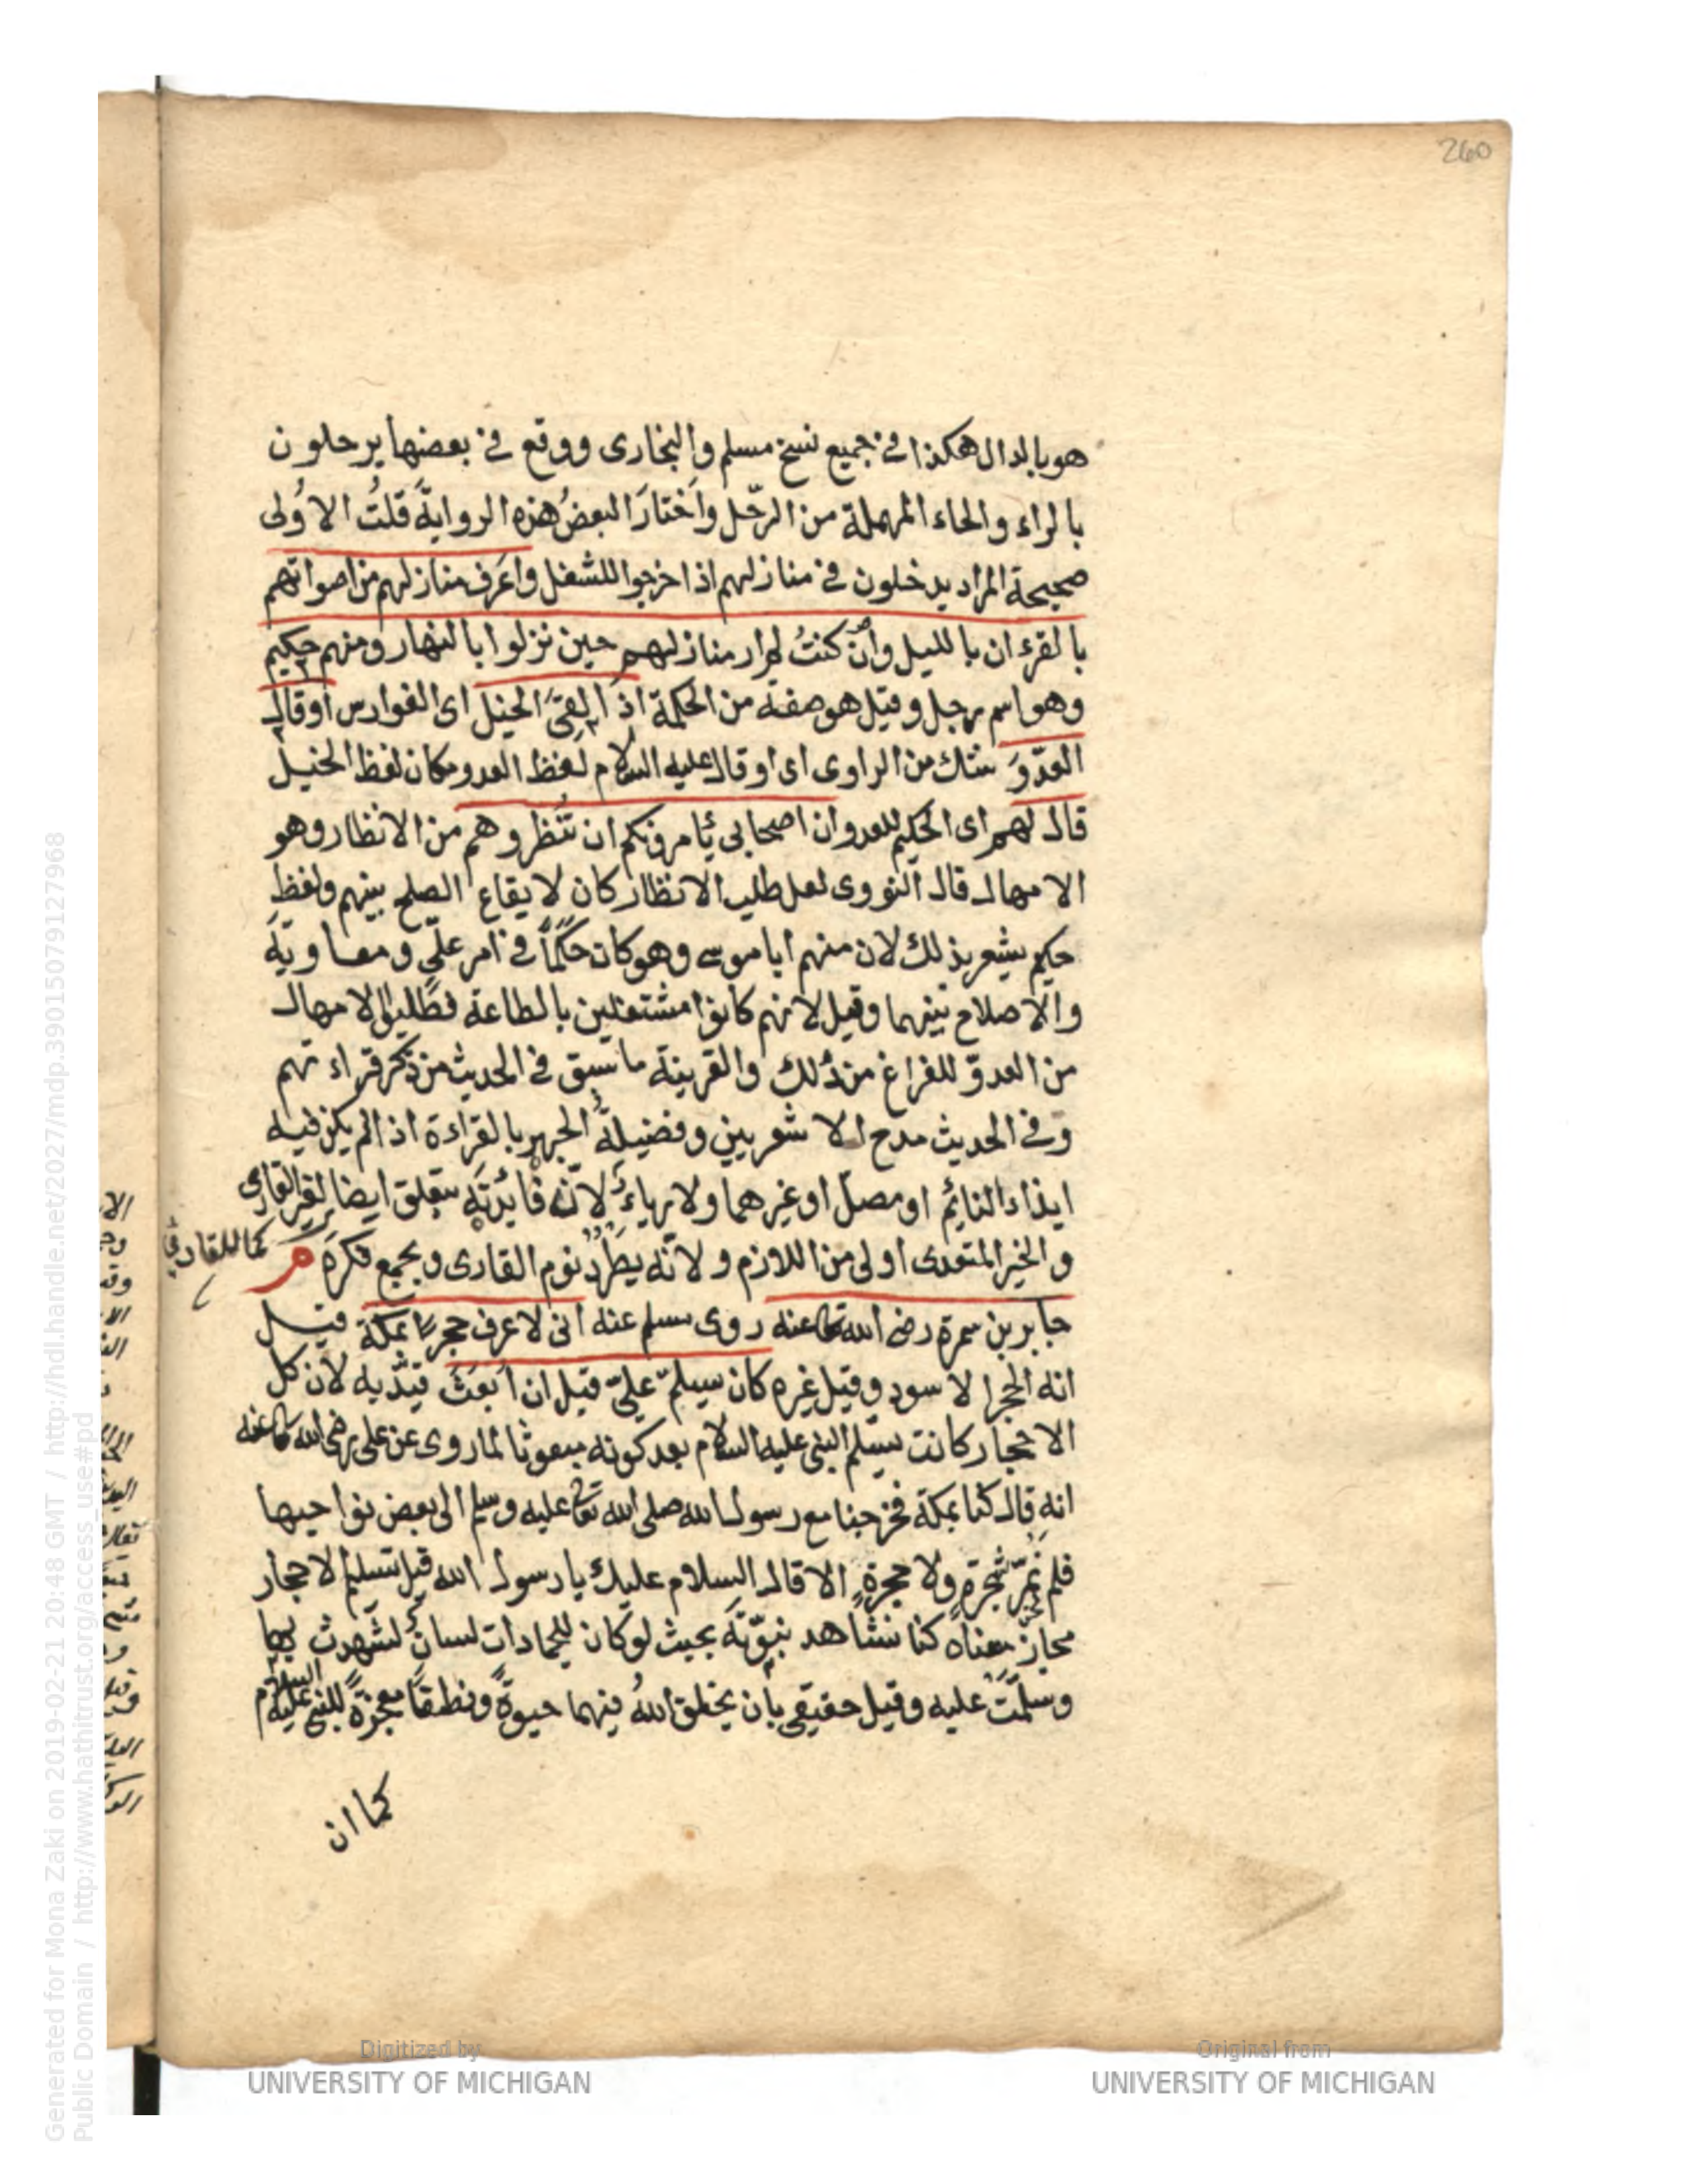 260
هو بالدال هكذا في جميع نسخ مسلم والبخارى ووقع في بعضها يرحلون
بالراء والحاء المهملة من الرّحل واَختارَ البعضُ هذه الروايةَ قلتُ الاوُلى
صحيحة المراد يدخلون في منازلهم اذا خرجوا للشغل واعَرف منازلهم من اصواتهم
بالقرءان بالليل وان كنتُ لم ار منازلهم حين نزلوا بالنهار ومنهم حكيم
وهو اسم رجل وقيل هو صفة من الحكمة اذا لقىَ الخيل اى الفوارس اوقال
العدّوَ شك من الراوى اى او قال عليه السلام لفظ العدو مكان لفظ الخيل
قال لهم اى الحكيم للعدو ان اصحابى ئامرونكم ان تنُظروهم من الانظار وهو
الامهال قال النووى لعل طلب الانظار كان لايقاع الصلح بينهم ولفظ
حكيم يشعر بذلك لان منهم ابا موسى وهو كان حَكَماً في امر علّي ومعاويَة
والاصلاح بينهما وقيل لانهم كانوا مشتغلين بالطاعة فطَلبوا الامهال
من العدوّ للفراغ من ذلك والقرينة ما سبق في الحديث من ذكر قراءتهم
وفى الحديث مدح الاشعريين وفضيلةُ الجهر بالقراءة اذا لم يكن فيه
ايذاء النائم او مصلّ او غيرهما ولا رياءٌ لانّ فائدتَه يتعلق ايضا لغير القارى
كما للقارئ
والخير المتعدى اولى من اللازم ولانّه يطَرُد نوم القارى ويجمع فكرَه م
جابر بن سمرة رضى الله تعا عنه روى مسلم عنه انى لاعرف حجرًا بمكة قيل
انه الحجر الاسود وقيل غيره كان يسلّم علىّ قبل ان اُبعَثَ قيّد به لان كل
الاحجار كانت يسّلم النبى عليه السلام بعد كونه مبعوثا لما روى عن على رضى الله تعا عنه
انه قال كنا بمكة فخرجنا مع رسول الله صلى الله تعا عليه وسلم الى بعض نواحيها
فلم نمُرّ شجرةٍ ولا حجرةٍ الا قال السلام عليك يا رسول الله قيل تسليم الاحجار
مجازٌ معناه كنا نشاهد نبوّتَه بحيث لو كان للجمادات لسانٌ لشَهدت بها
وسلّمَت عليه وقيل حقيقى بان يخلق اللهُ فيهما حيوةً ونطقاً معجزةً للنبى عليه السلام
كما ان
Digitized by
UNIVERSITY OF MICHIGAN
Original from
UNIVERSITY OF MICHIGAN
Generated for Mona Zaki on 2019-02-21 20:48 GMT / http://hdl.handle.net/2027/mdp.39015079127968
Public Domain / http://www.hathitrust.org/access_use#pd